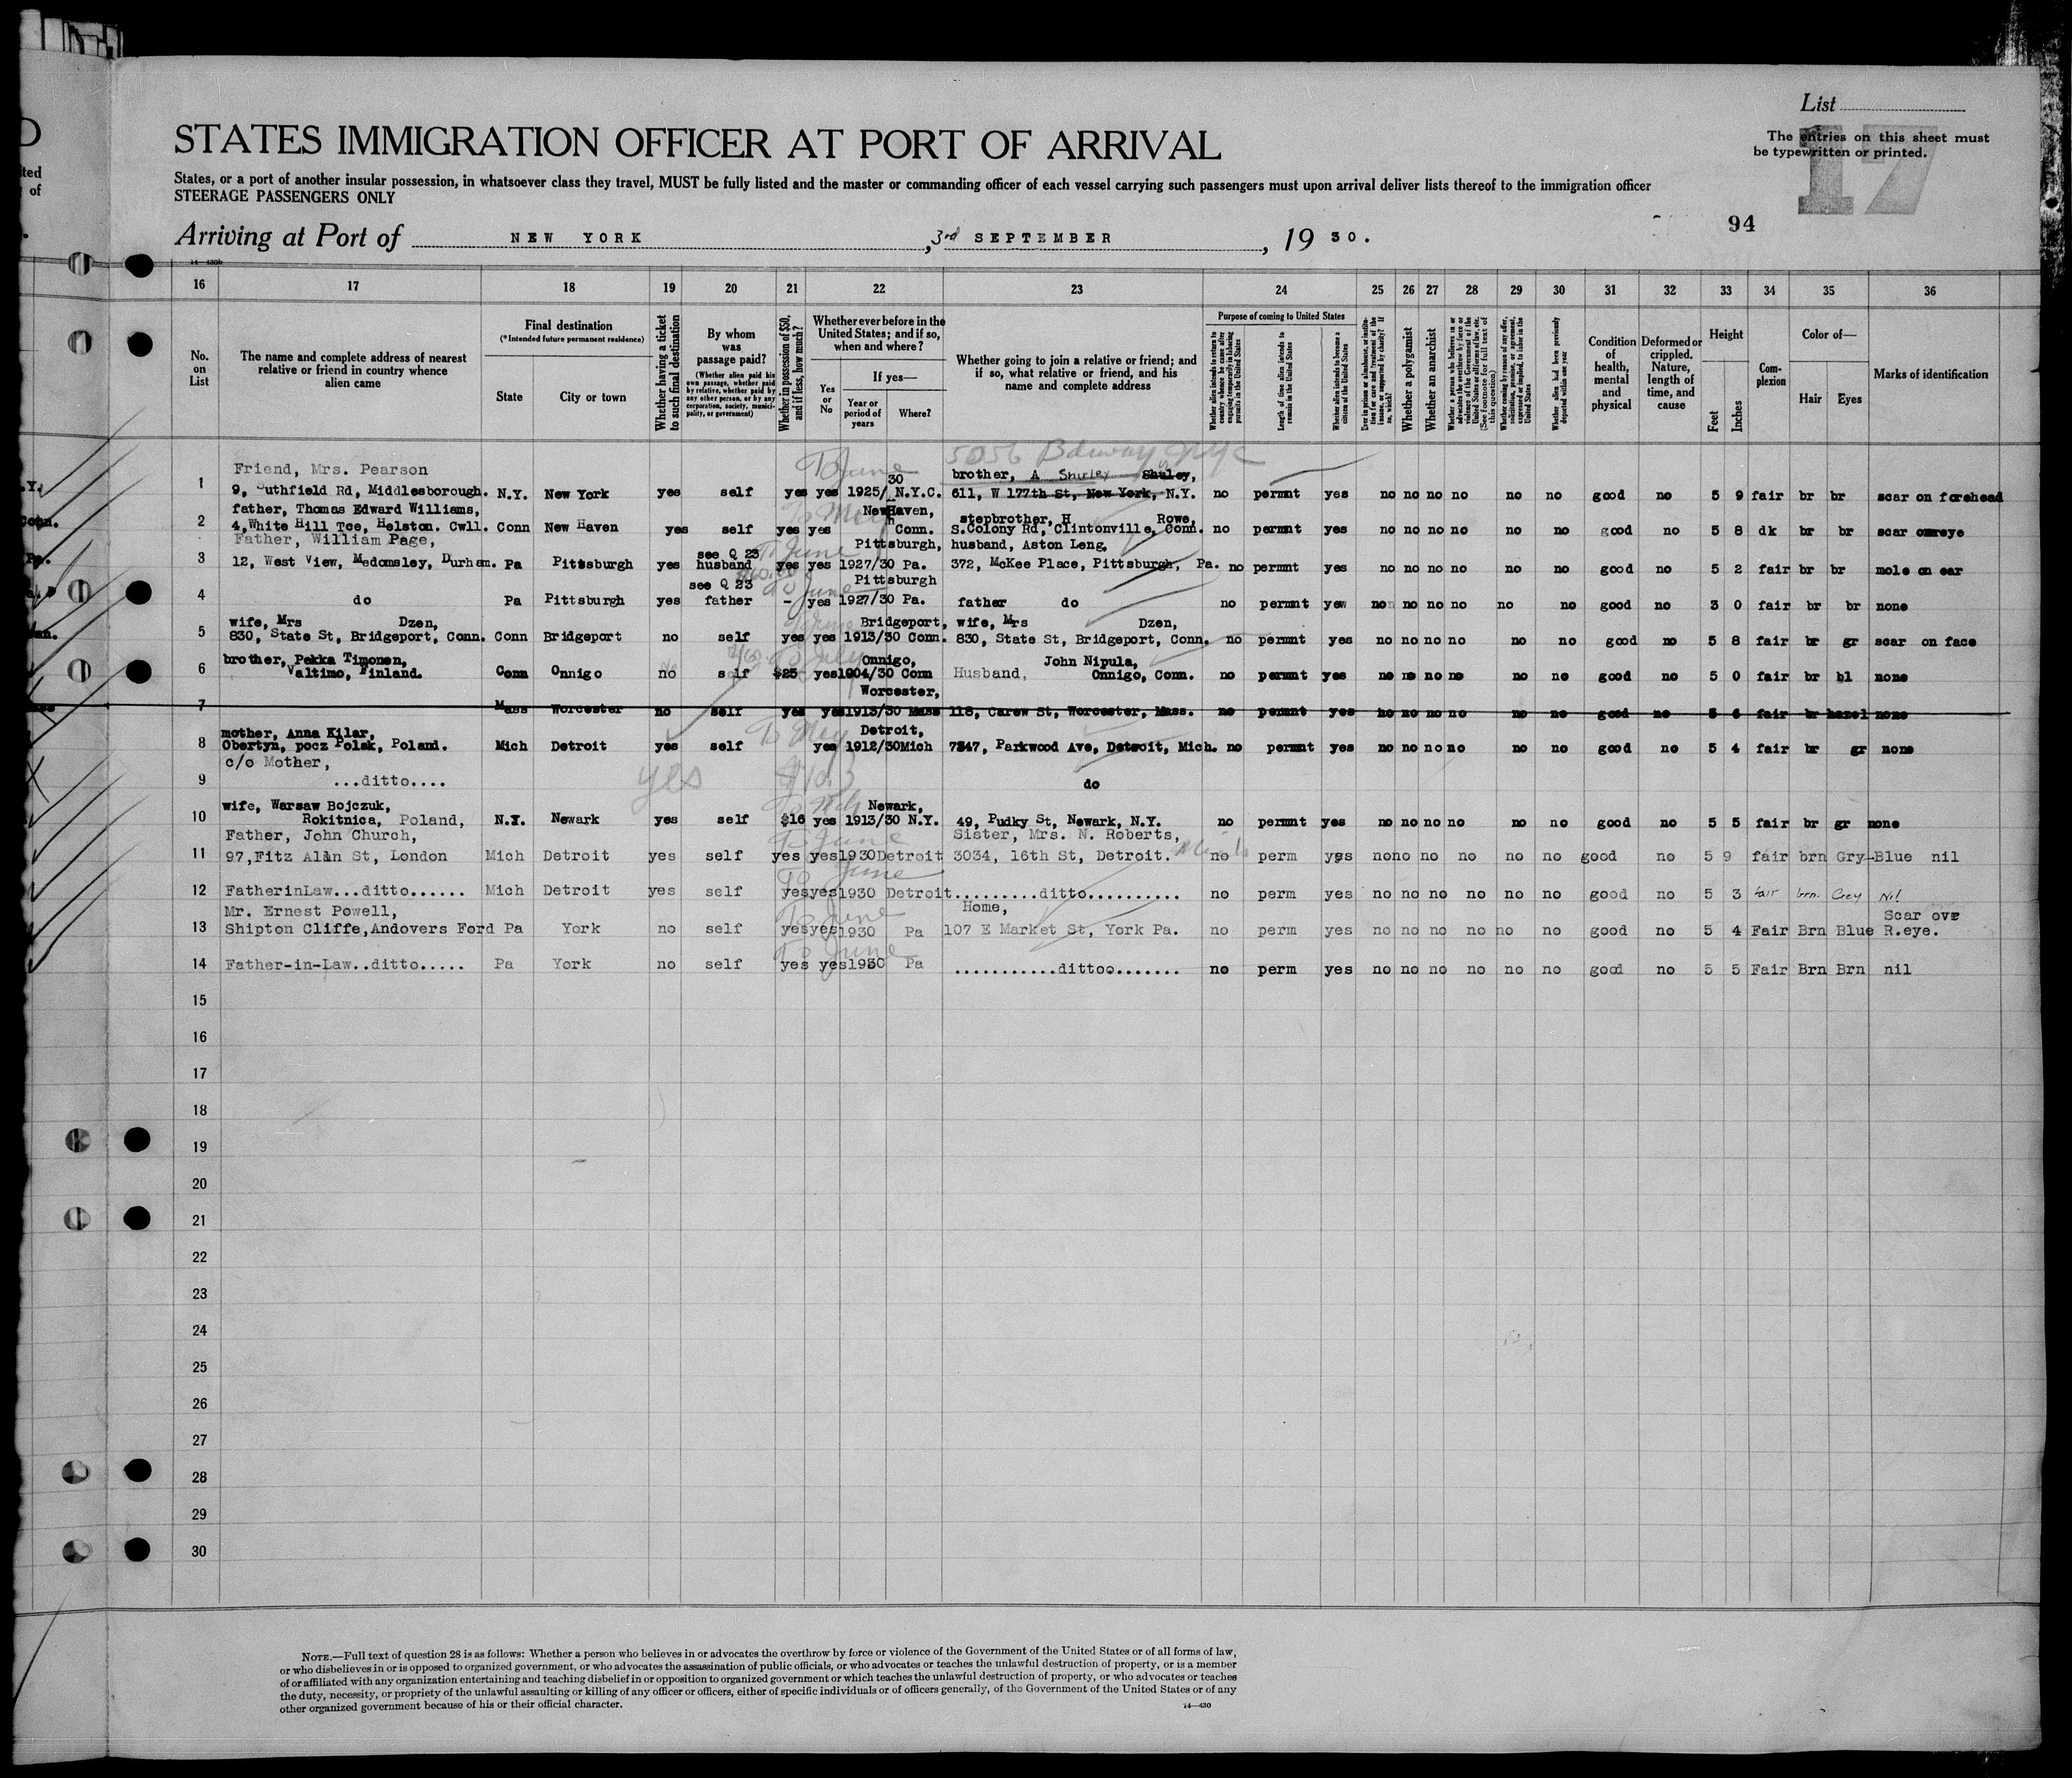 List
The entries on this sheet must
be typewritten or printed.
17
94
STATES IMMIGRATION OFFICER AT PORT OF ARRIVAL
States, or a port of another insular possession, in whatsoever class they travel, MUST be fully listed and the master or commanding officer of each vessel carrying such passengers must upon arrival deliver lists thereof to the immigration officer
STEERAGE PASSENGERS ONLY
Arriving at Port of NEW YORK, 3rd SEPTEMBER, 19 30.
16 17 18 19 20 21 22 23 24 25 26 27 28 29 30 31 32 33 34 35 36
No. on List
The name and complete address of nearest relative or friend in country whence alien came
Final destination
(*Intended future permanent residence)
State
City or town
Whether having a ticket to such final destination
By whom was passage paid?
(Whether alien paid his own passage, whether paid by relative, whether paid by any other person, or by any corporation, society, municipality, or government)
Whether in possession of $50, and if less, how much?
Whether ever before in the United States; and if so, when and where?
Yes or No
If yes—
Year or period of years
Where?
Whether going to join a relative or friend; and if so, what relative or friend, and his name and complete address
Purpose of coming to United States
Whether alien intends to return to country whence he came after engaging temporarily in laboring pursuits in the United States
Length of time alien intends to remain in the United States
Whether alien intends to become a citizen of the United States
Ever in prison or almshouse, or institution for care and treatment of the insane, or supported by charity? If so, which?
Whether a polygamist
Whether an anarchist
Whether a person who believes in or advocates the overthrow by force or violence of the Government of the United States or all forms of law, etc. (See footnote for full text of this question)
Whether coming by reason of any offer, solicitation, promise, or agreement, expressed or implied, to labor in the United States
Whether alien had been previously deported within one year
Condition of health, mental and physical
Deformed or crippled. Nature, length of time, and cause
Height
Feet
Inches
Complexion
Color of—
Hair
Eyes
Marks of identification
5056 Bdway NYC
Friend, Mrs. Pearson To June 30 brother, A Shirley Shuley,
1 9, uthfield Rd, Middlesborough. N.Y. New York yes self yes yes 1925/ N.Y.C. 611, W 177th St, New York, N.Y. no permnt yes no no no no no no good no 5 9 fair br br scar on forehead
father, Thomas Edward Williams, To May NewHaven, stepbrother, H Rowe,
2 4,White Hill Tce, Helston. Cwll. Conn New Haven yes self yes yes Conn. S.Colony Rd, Clintonville, Conn. no permnt yes no no no no no no good no 5 8 dk br br scar
Father, William Page, see Q 23 To June Pittsburgh, husband, Aston Leng,
3 12, West View, Medomsley, Durham. Pa Pittsburgh yes husband yes yes 1927/30 Pa. 372, McKee Place, Pittsburgh, Pa. no permnt yes no no no no no no good no 5 2 fair br br mole on ear
see Q 23 To June Pittsburgh
4 do Pa Pittsburgh yes father - yes 1927/30 Pa. father do no permnt yew no no no no no no good no 3 0 fair br br none
wife, Mrs Dzen, Bridgeport, wife, Mrs Dzen,
5 830, State St, Bridgeport, Conn. Conn Bridgeport no self yes yes 1913/30 Conn. 830, State St, Bridgeport, Conn. no permnt yes no no no no no no good no 5 8 fair br gr scar on face
brother, Pekka Timonen, To July Onnigo, John Nipula,
6 Valtimo, Finland. Conn Onnigo no self $25 yes 1904/30 Conn Husband, Onnigo, Conn. no permnt yes no no no no no no good no 5 0 fair br bl none
Worcester,
7 Mass Worcester no self yes yes 1913/30 Mass 118, Carew St, Worcester, Mass. no permnt yes no no no no no no good no 5 6 fair br hazel none
mother, Anna Kilar, To May Detroit,
8 Obertyn, pocz Polak, Poland. Mich Detroit yes self yes 1912/30 Mich 7347, Parkwood Ave, Detroit, Mich. no permnt yes no no no no no no good no 5 4 fair br gr none
c/o Mother,
9 ...ditto.... yes do
wife, Warsaw Bojczuk, Newark,
10 Rokitnica, Poland, N.Y. Newark yes self $16 yes 1913/30 N.Y. 49, Pudky St, Newark, N.Y. no permnt yes no no no no no no good no 5 5 fair br gr none
Father, John Church, To June Sister, Mrs. N. Roberts,
11 97,Fitz Alan St, London Mich Detroit yes self yes yes 1930 Detroit 3034, 16th St, Detroit. no perm yes no no no no no no good no 5 9 fair brn Gry-Blue nil
To June
12 FatherinLaw...ditto...... Mich Detroit yes self yes yes 1930 Detroit..........ditto........... no perm yes no no no no no no good no 5 3 fair brn. Grey Nil
Mr. Ernest Powell, To June Home, Scar ove
13 Shipton Cliffe,Andovers Ford Pa York no self yes yes 1930 Pa 107 E Market St, York Pa. no perm yes no no no no no no good no 5 4 Fair Brn Blue R.eye.
To June
14 Father-in-Law..ditto..... Pa York no self yes yes 1930 Pa ...........dittoo........ no perm yes no no no no no no good no 5 5 Fair Brn Brn nil
15
16
17
18
19
20
21
22
23
24
25
26
27
28
29
30
NOTE.—Full text of question 28 is as follows: Whether a person who believes in or advocates the overthrow by force or violence of the Government of the United States or of all forms of law,
or who disbelieves in or is opposed to organized government, or who advocates the assassination of public officials, or who advocates or teaches the unlawful destruction of property, or is a member
of or affiliated with any organization entertaining and teaching disbelief in or opposition to organized government or which teaches the unlawful destruction of property, or who advocates or teaches
the duty, necessity, or propriety of the unlawful assaulting or killing of any officer or officers, either of specific individuals or of officers generally, of the Government of the United States or of any
other organized government because of his or their official character.
14—430